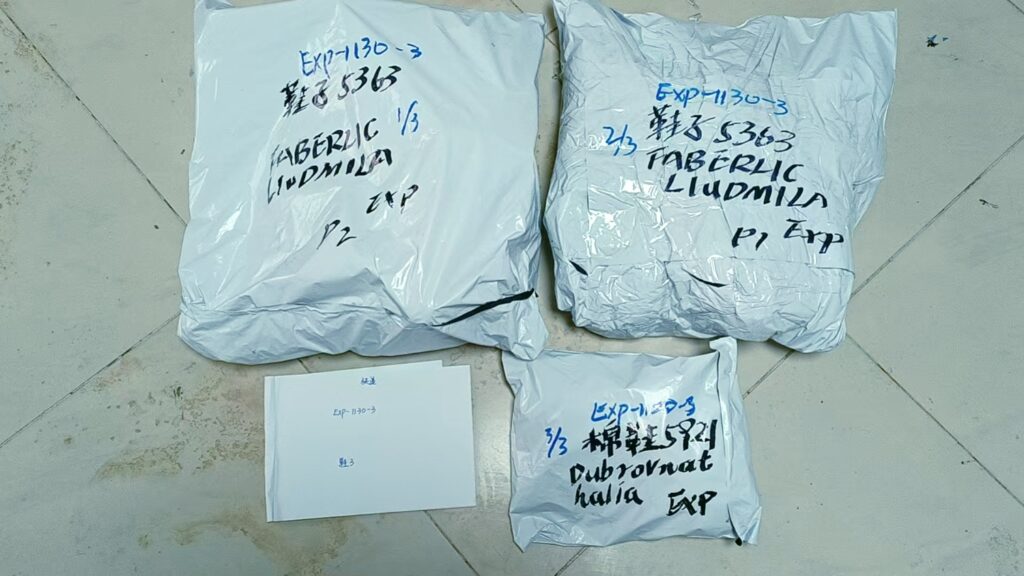 Exp-1130-3
鞋子5363
1/3
FABERLIC
LIUDMILA
EXP
P2
Exp-1130-3
2/3
鞋子5363
FABERLIC
LIUDMILA
P1 Exp
Exp-1130-3
鞋子
Exp-1130-3
3/3
棉鞋5921
Dubrovnat
halia
EXP